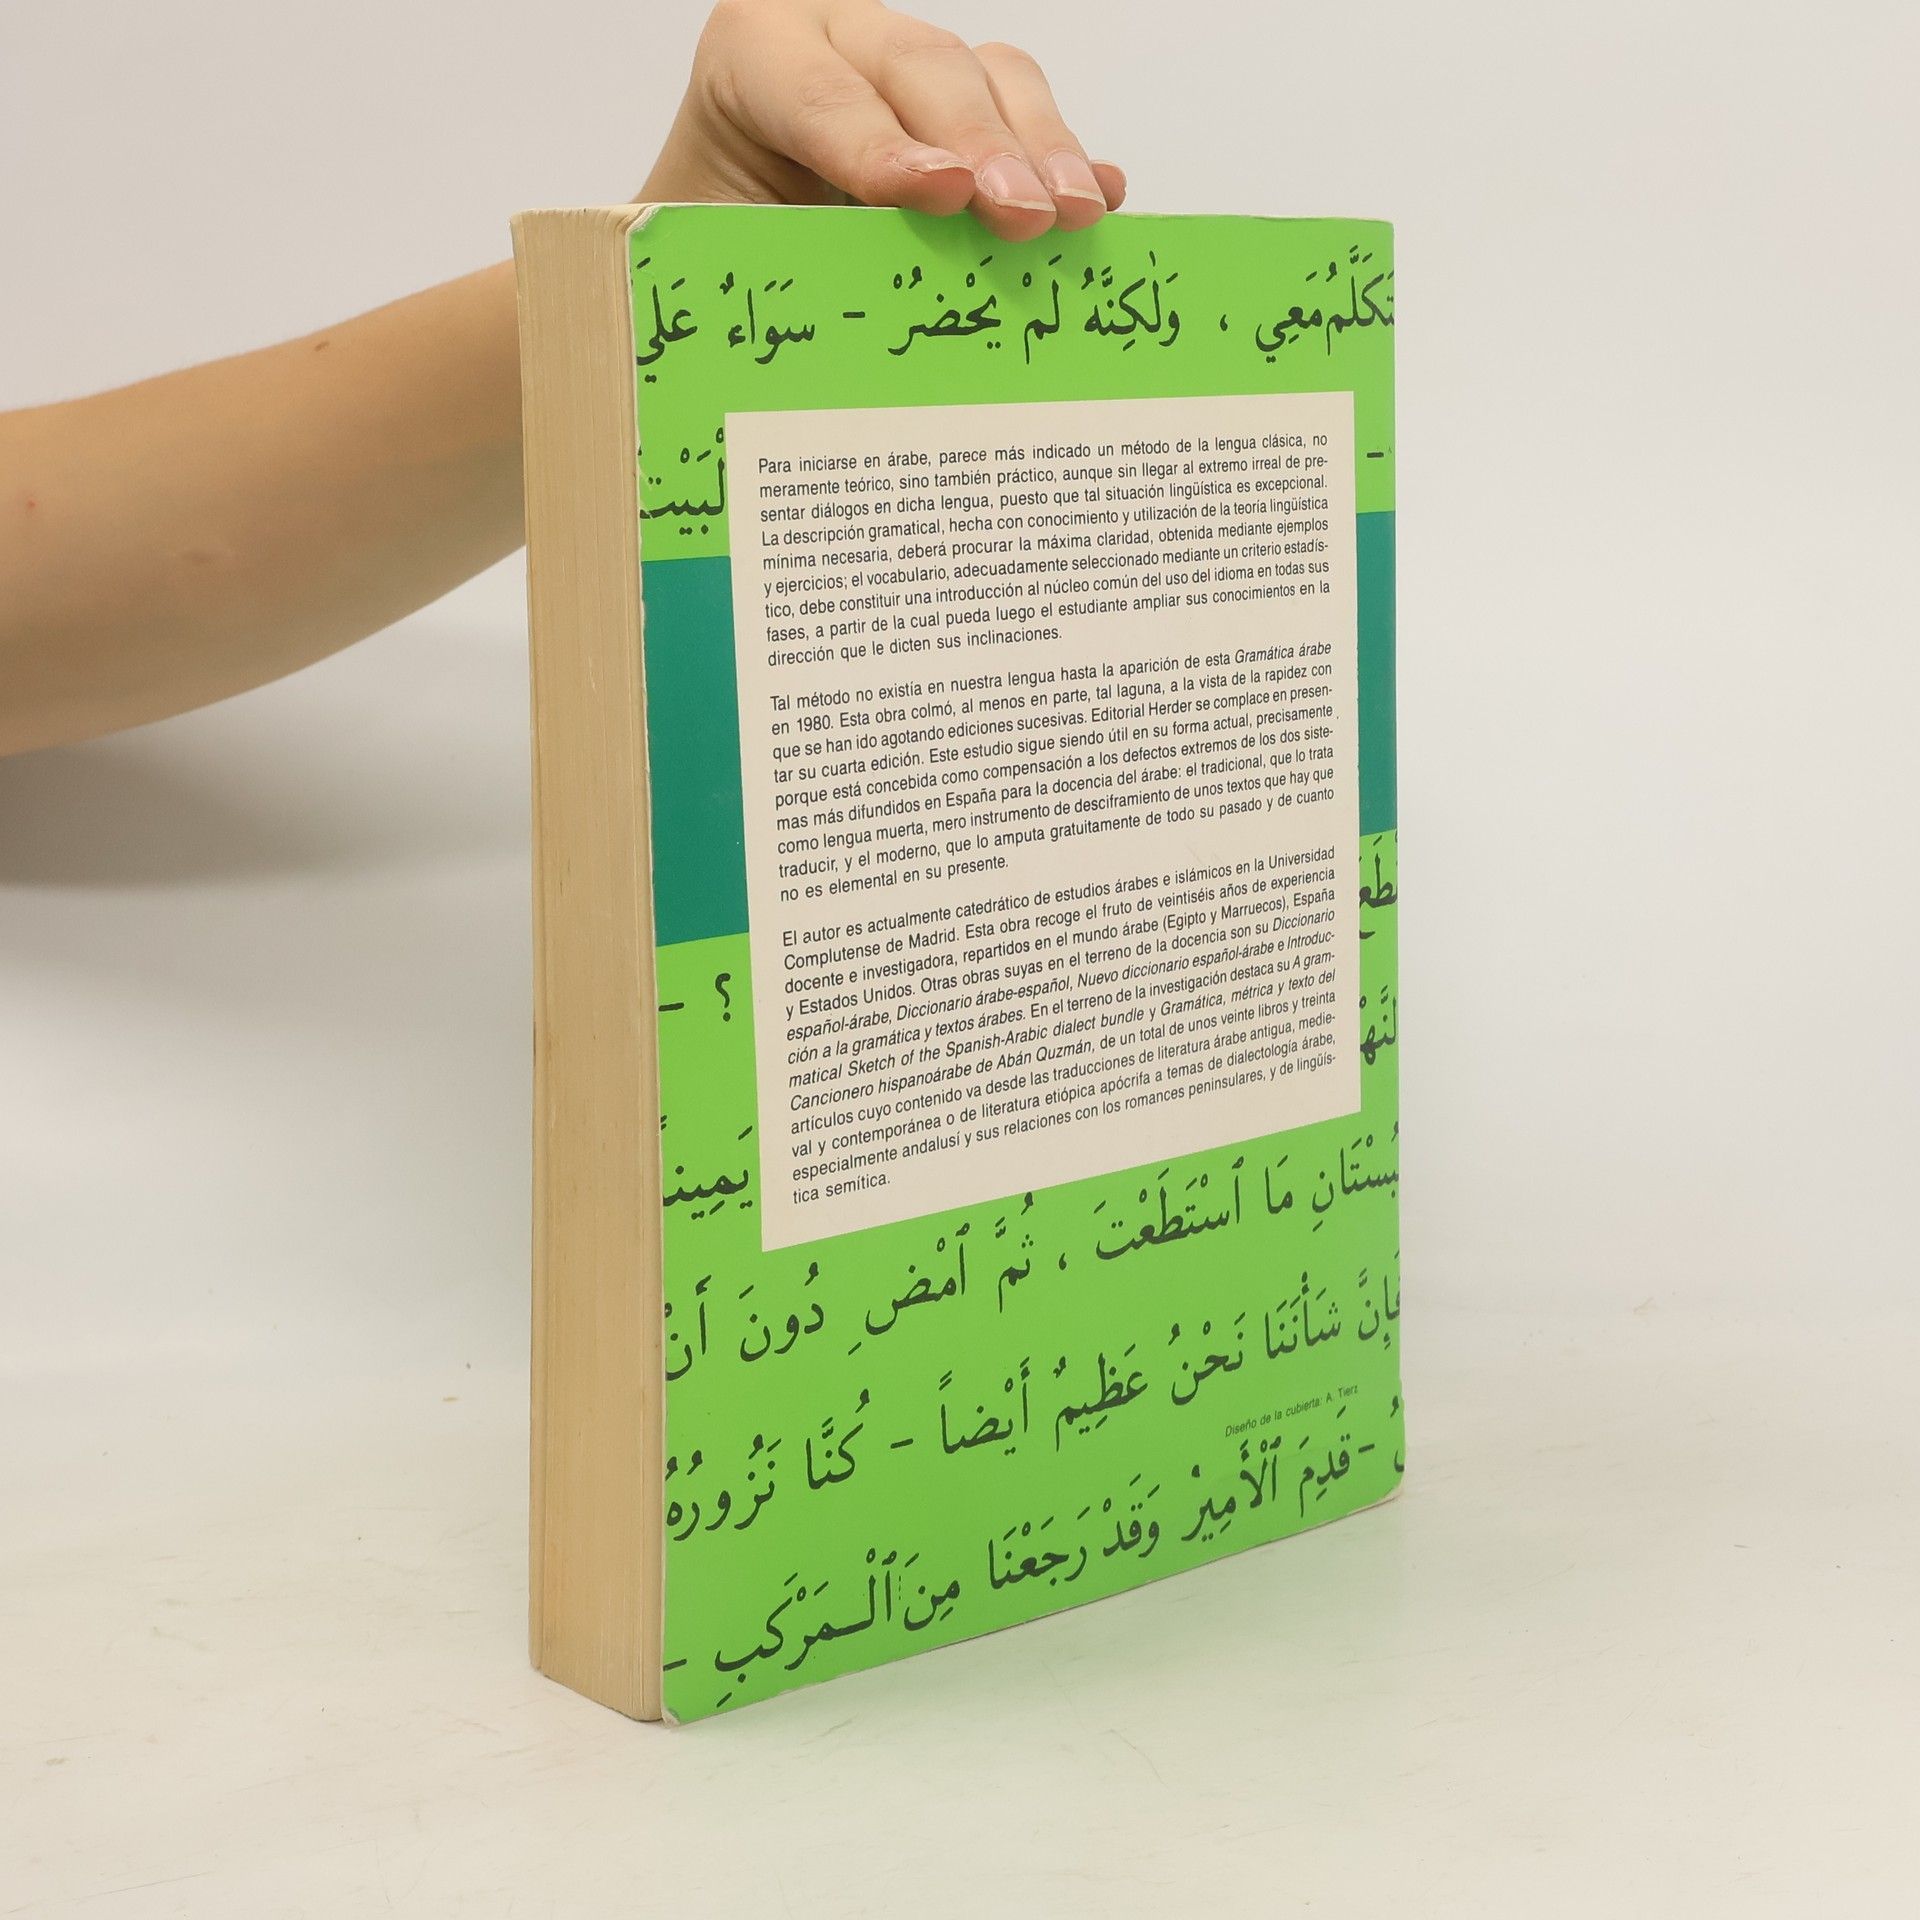 تَكَلَّمُ مَعِي ، وَلٰكِنَّهُ لَمْ يَحْضُرْ - سَوَاءٌ عَلَي
Para iniciarse en árabe, parece más indicado un método de la lengua clásica, no
meramente teórico, sino también práctico, aunque sin llegar al extremo irreal de pre-
sentar diálogos en dicha lengua, puesto que tal situación lingüística es excepcional.
La descripción gramatical, hecha con conocimiento y utilización de la teoría lingüística
mínima necesaria, deberá procurar la máxima claridad, obtenida mediante ejemplos
y ejercicios; el vocabulario, adecuadamente seleccionado mediante un criterio estadís-
tico, debe constituir una introducción al núcleo común del uso del idioma en todas sus
fases, a partir de la cual pueda luego el estudiante ampliar sus conocimientos en la
dirección que le dicten sus inclinaciones.
- لْبَيْت
Tal método no existía en nuestra lengua hasta la aparición de esta Gramática árabe
en 1980. Esta obra colmó, al menos en parte, tal laguna, a la vista de la rapidez con
que se han ido agotando ediciones sucesivas. Editorial Herder se complace en presen-
tar su cuarta edición. Este estudio sigue siendo útil en su forma actual, precisamente
porque está concebida como compensación a los defectos extremos de los dos siste-
mas más difundidos en España para la docencia del árabe: el tradicional, que lo trata
como lengua muerta, mero instrumento de desciframiento de unos textos que hay que
traducir, y el moderno, que lo amputa gratuitamente de todo su pasado y de cuanto
no es elemental en su presente.
El autor es actualmente catedrático de estudios árabes e islámicos en la Universidad
Complutense de Madrid. Esta obra recoge el fruto de veintiséis años de experiencia
docente e investigadora, repartidos en el mundo árabe (Egipto y Marruecos), España
y Estados Unidos. Otras obras suyas en el terreno de la docencia son su Diccionario
español-árabe, Diccionario árabe-español, Nuevo diccionario español-árabe e Introduc-
ción a la gramática y textos árabes. En el terreno de la investigación destaca su A gram-
matical Sketch of the Spanish-Arabic dialect bundle y Gramática, métrica y texto del
Cancionero hispanoárabe de Abán Quzmán, de un total de unos veinte libros y treinta
artículos cuyo contenido va desde las traducciones de literatura árabe antigua, medie-
val y contemporánea o de literatura etiópica apócrifa a temas de dialectología árabe,
especialmente andalusí y sus relaciones con los romances peninsulares, y de lingüís-
tica semítica.
؟ -
لنَّهْ
يَمِينـ
بُسْتَانِ مَا ٱسْتَطَعْتَ ، ثُمَّ ٱمْضِ دُونَ أَنْ
فَإِنَّ شَأْنَنَا نَحْنُ عَظِيمٌ أَيْضاً - كُنَّا نَزُورُهُ
Diseño de la cubierta: A. Tierz
- قَدِمَ ٱلْأَمِيرُ وَقَدْ رَجَعْنَا مِنَ ٱلْـمَرْكَبِ -